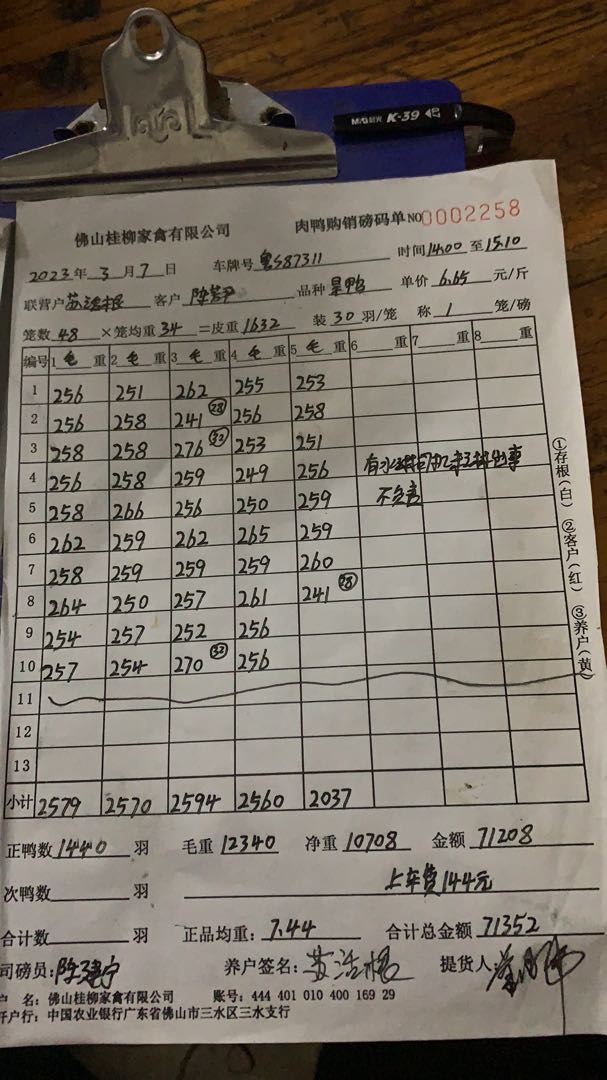 M&G K-39
佛山桂柳家禽有限公司 肉鸭购销磅码单 NO 0002258
2023年 3月 7日 车牌号 粤S87311 时间 14:00 至 15:10
联营户 苏浩根 客户 品种 旱鸭 单价 6.65 元/斤
笼数 48 ×笼均重 34 =皮重 1632 装 30 羽/笼 称 1 笼/磅
编号 1 毛 重 2 毛 重 3 毛 重 4 毛 重 5 毛 重 6 重 7 重 8 重
1 256 251 262 255 253
2 256 258 241 (28) 256 258
3 258 258 276 (32) 253 251
4 256 258 259 249 256
5 258 266 256 250 259 不负责
6 262 259 262 265 259
7 258 259 259 259 260
8 264 250 257 261 241 (28)
9 254 257 252 256
10 257 254 270 (32) 256
11
12
13
小计 2579 2570 2594 2560 2037
①存根(白) ②客户(红) ③养户(黄)
正鸭数 1440 羽 毛重 12340 净重 10708 金额 71208
次鸭数 羽 上车费144元
合计数 羽 正品均重: 7.44 合计总金额 71352
司磅员: 养户签名: 苏浩根 提货人
户 名: 佛山桂柳家禽有限公司 账号: 444 401 010 400 169 29
开户行: 中国农业银行广东省佛山市三水区三水支行